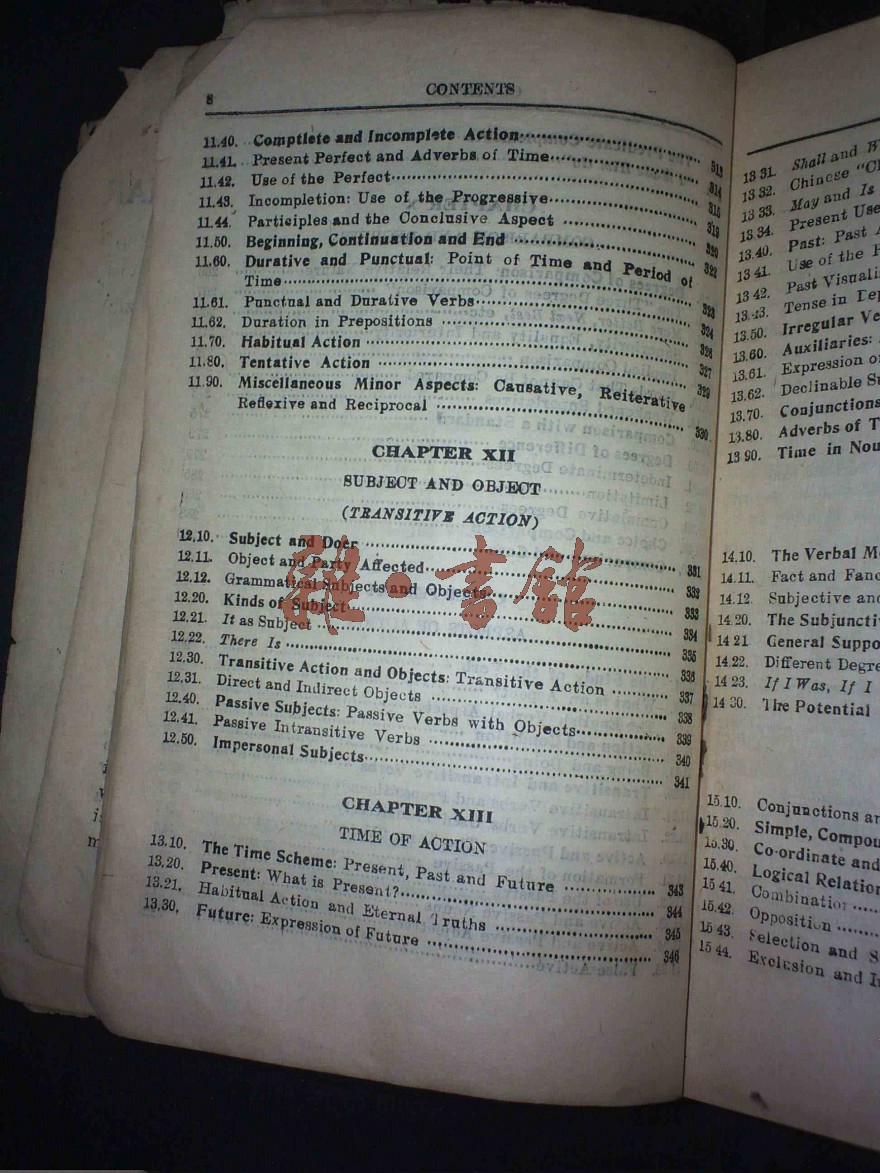 8
CONTENTS
11.40. Comptlete and Incomplete Action 313
11.41. Present Perfect and Adverbs of Time 314
11.42. Use of the Perfect 315
11.43. Incompletion: Use of the Progressive 319
11.44. Participles and the Conclusive Aspect 320
11.50. Beginning, Continuation and End 322
11.60. Durative and Punctual: Point of Time and Period of
Time 323
11.61. Punctual and Durative Verbs 324
11.62. Duration in Prepositions 326
11.70. Habitual Action 327
11.80. Tentative Action 329
11.90. Miscellaneous Minor Aspects: Causative, Reiterative
Reflexive and Reciprocal 330
CHAPTER XII
SUBJECT AND OBJECT
(TRANSITIVE ACTION)
12.10. Subject and Doer 331
12.11. Object and Party Affected 332
12.12. Grammatical Subjects and Objects 333
12.20. Kinds of Subject 334
12.21. It as Subject 335
12.22. There Is 336
12.30. Transitive Action and Objects: Transitive Action 337
12.31. Direct and Indirect Objects 338
12.40. Passive Subjects: Passive Verbs with Objects 339
12.41. Passive Intransitive Verbs 340
12.50. Impersonal Subjects 341
CHAPTER XIII
TIME OF ACTION
13.10. The Time Scheme: Present, Past and Future 343
13.20. Present: What is Present? 344
13.21. Habitual Action and Eternal Truths 345
13.30. Future: Expression of Future 346
雜·書館
13 31. Shall and W
13 32. Chinese "C
13 33. May and Is
13.34. Present Use
13.40. Past: Past
13 41. Use of the
13 42. Past Visuali
13.43. Tense in
13.50. Irregular Ve
13.60. Auxiliaries:
13.61. Expression of
13.62. Declinable Su
13.70. Conjunctions
13.80. Adverbs of T
13 90. Time in Nou
14.10. The Verbal M
14.11. Fact and Fanc
14.12. Subjective and
14.20. The Subjuncti
14 21 General Suppo
14.22. Different Degre
14 23. If I Was, If I
14 30. The Potential
15.10. Conjunctions an
15.20. Simple, Compou
15.30. Co-ordinate and
15.40. Logical Relation
15 41. Combination
15.42. Opposition
15 43. Selection and S
15 44. Exclusion and I